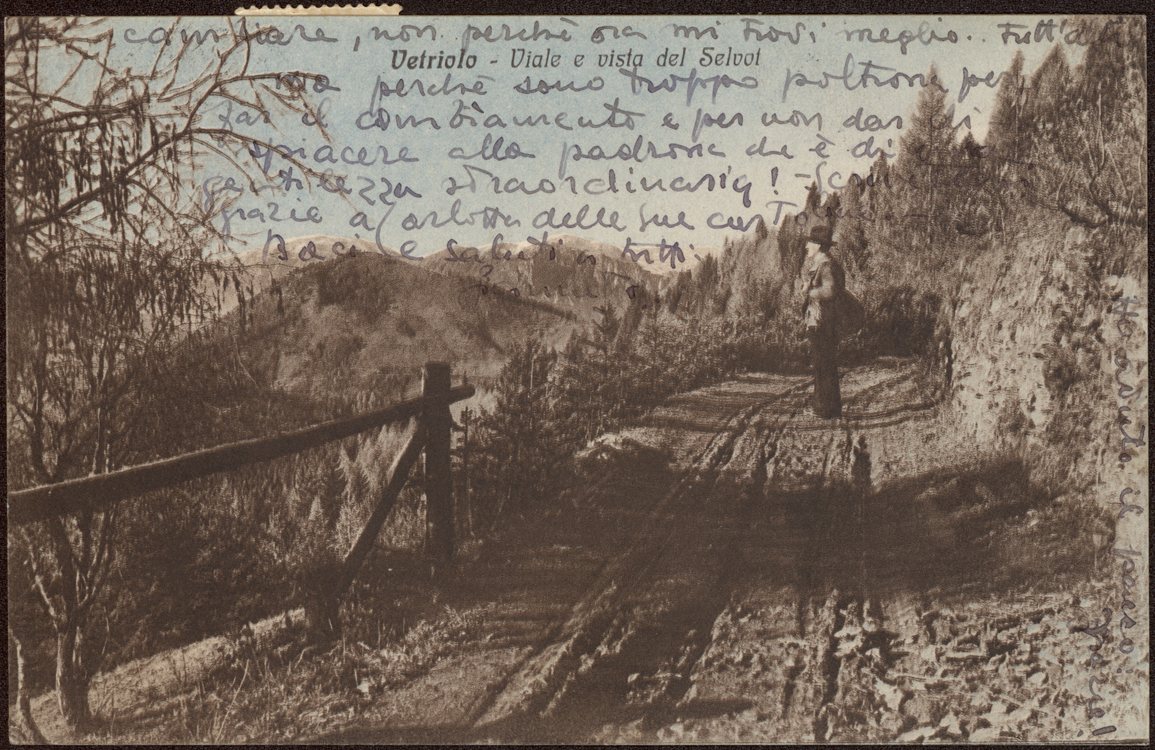 cambiare, non perchè ora mi trovi meglio.. tutt'al
Vetriolo - Viale e vista del Selvot
ma perchè sono troppo poltrona per
far il cambiamento e per non dar
spiacere alla padrona che è di
gentilezza straordinaria! -
grazie a Carlotta delle sue
Baci e saluti a tutti.
Ho avuto il